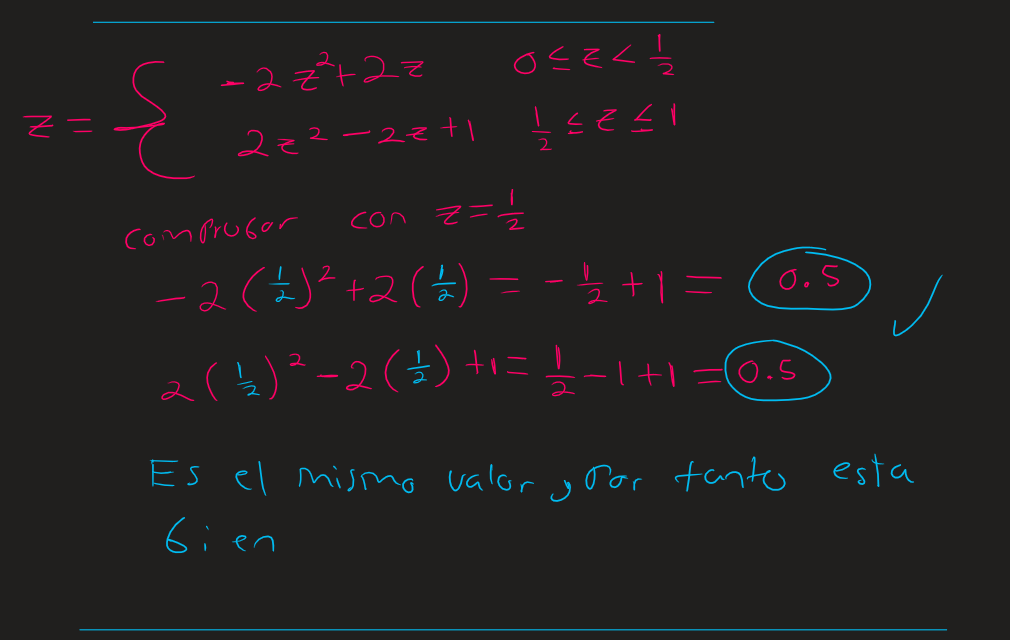 z = { -2z²+2z 0 ≤ z < 1/2
2z² - 2z + 1 1/2 ≤ z ≤ 1
comprobar con z = 1/2
-2(1/2)² + 2(1/2) = -1/2 + 1 = 0.5 ✓
2(1/2)² - 2(1/2) + 1 = 1/2 - 1 + 1 = 0.5
Es el mismo valor, por tanto esta
bien